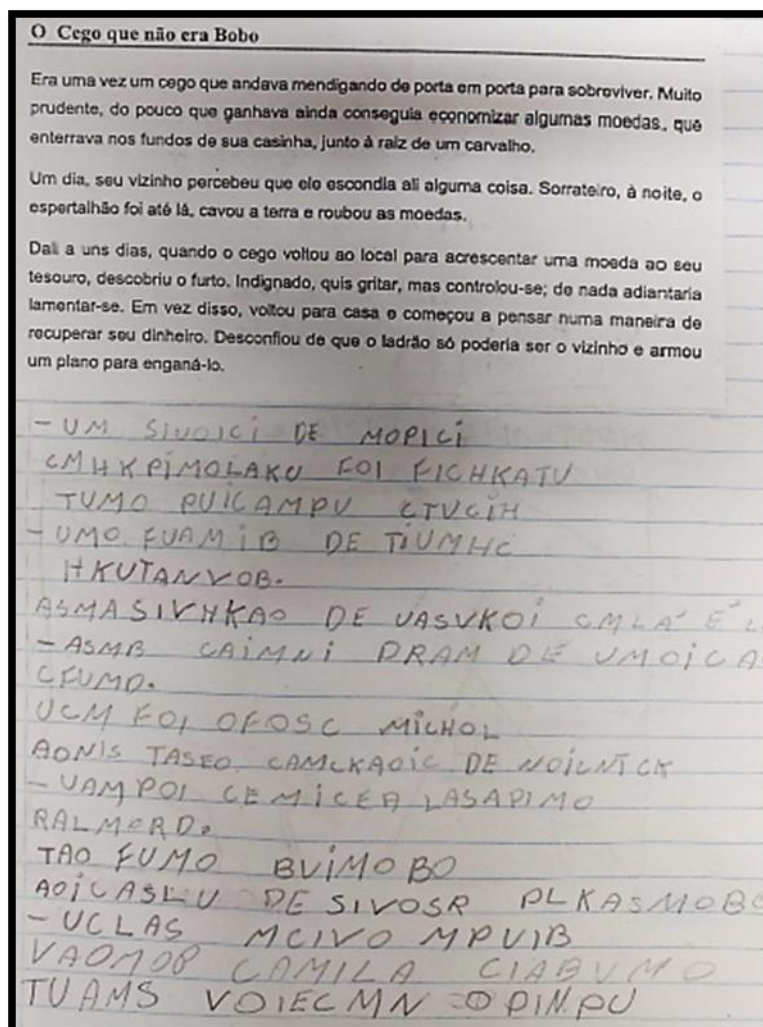 O Cego que não era Bobo
Era uma vez um cego que andava mendigando de porta em porta para sobreviver. Muito
prudente, do pouco que ganhava ainda conseguia economizar algumas moedas, que
enterrava nos fundos de sua casinha, junto à raiz de um carvalho.
Um dia, seu vizinho percebeu que ele escondia ali alguma coisa. Sorrateiro, à noite, o
espertalhão foi até lá, cavou a terra e roubou as moedas.
Dali a uns dias, quando o cego voltou ao local para acrescentar uma moeda ao seu
tesouro, descobriu o furto. Indignado, quis gritar, mas controlou-se; de nada adiantaria
lamentar-se. Em vez disso, voltou para casa e começou a pensar numa maneira de
recuperar seu dinheiro. Desconfiou de que o ladrão só poderia ser o vizinho e armou
um plano para enganá-lo.
- UM SIVOICI DE MOPICI
CMHKPIMOLAKU FOI FICHKATU
TUMO PUICAMPU CTUCIH
- UMO FUAMIB DE TIUMHC
HKUTANVOB.
ASMASIVHKAO DE VASVKOI CMLA' E'
- ASMB CAIMNI DRAM DE UMOICA
CFUMO.
UCM FOI OFOSC MICHOL
AONIS TASEO CAMCKAOIC DE NOICNTCK
- VAMPOI CEMICEA LASAPIMO
RALMORD.
TAO FUMO BVIMOBO
AOICASLU DE SIVOSR PLKASMOBO
- UCLAS MCIVO MPUIB
VAOMOB CAMILA CIABVMO
TUAMS VOIECMN OPINPU